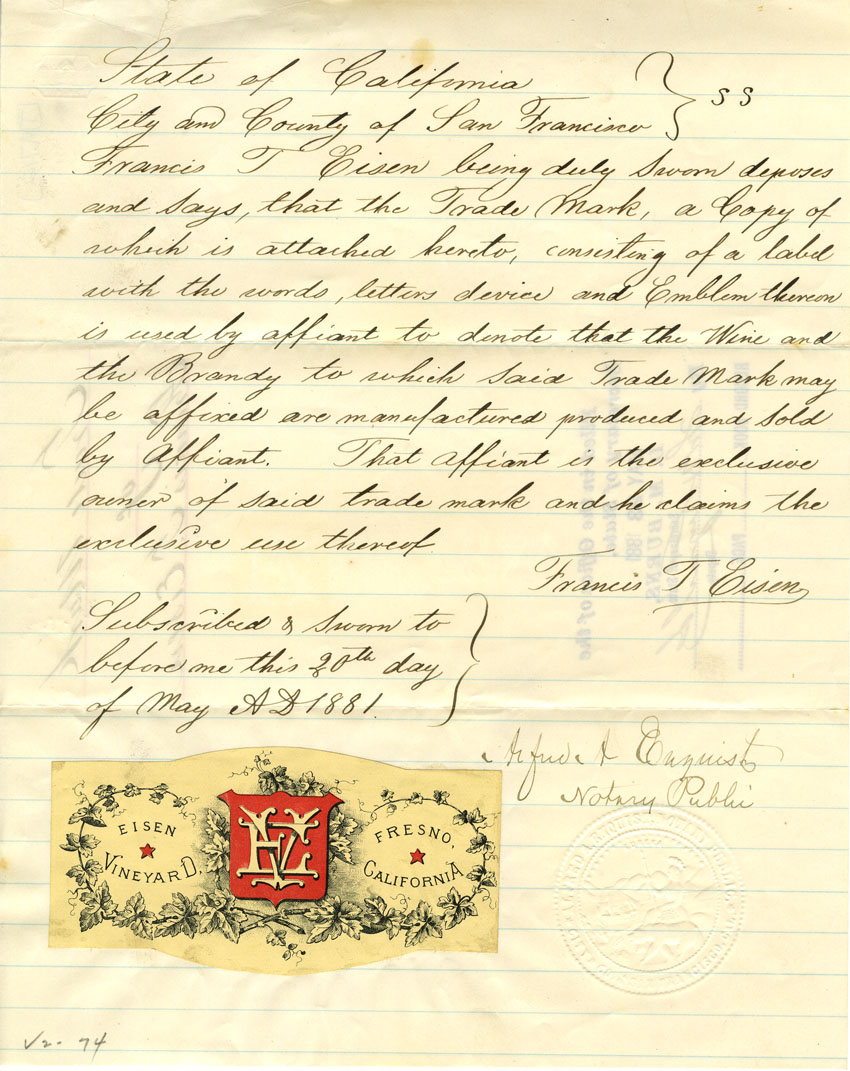 State of California
City and County of San Francisco } SS
Francis T Eisen being duly Sworn deposes
and Says, that the Trade Mark, a Copy of
which is attached hereto, consisting of a label
with the words, letters device and Emblem thereon
is used by affiant to denote that the Wine and
the Brandy to which Said Trade Mark may
be affixed are manufactured produced and Sold
by Affiant. That affiant is the exclusive
owner of said trade mark and he claims the
exclusive use thereof
Francis T Eisen
Subscribed & Sworn to
before me this 20th day
of May AD 1881.
Enquist
Notary Public
EISEN
VINEYARD,
FRESNO,
CALIFORNIA
74